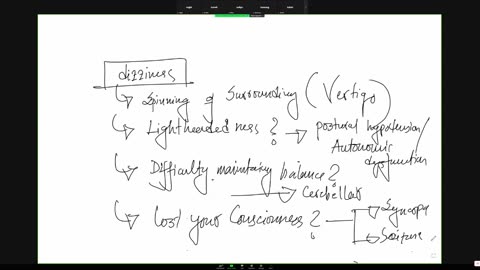 dizziness
Spinning of Surrounding (Vertigo)
Lightheadedness? → postural hypotension/
Autonomic
dysfunction
Difficulty maintaining balance?
→ Cerebellar
Lost your Consciousness?
Syncope
Seizure